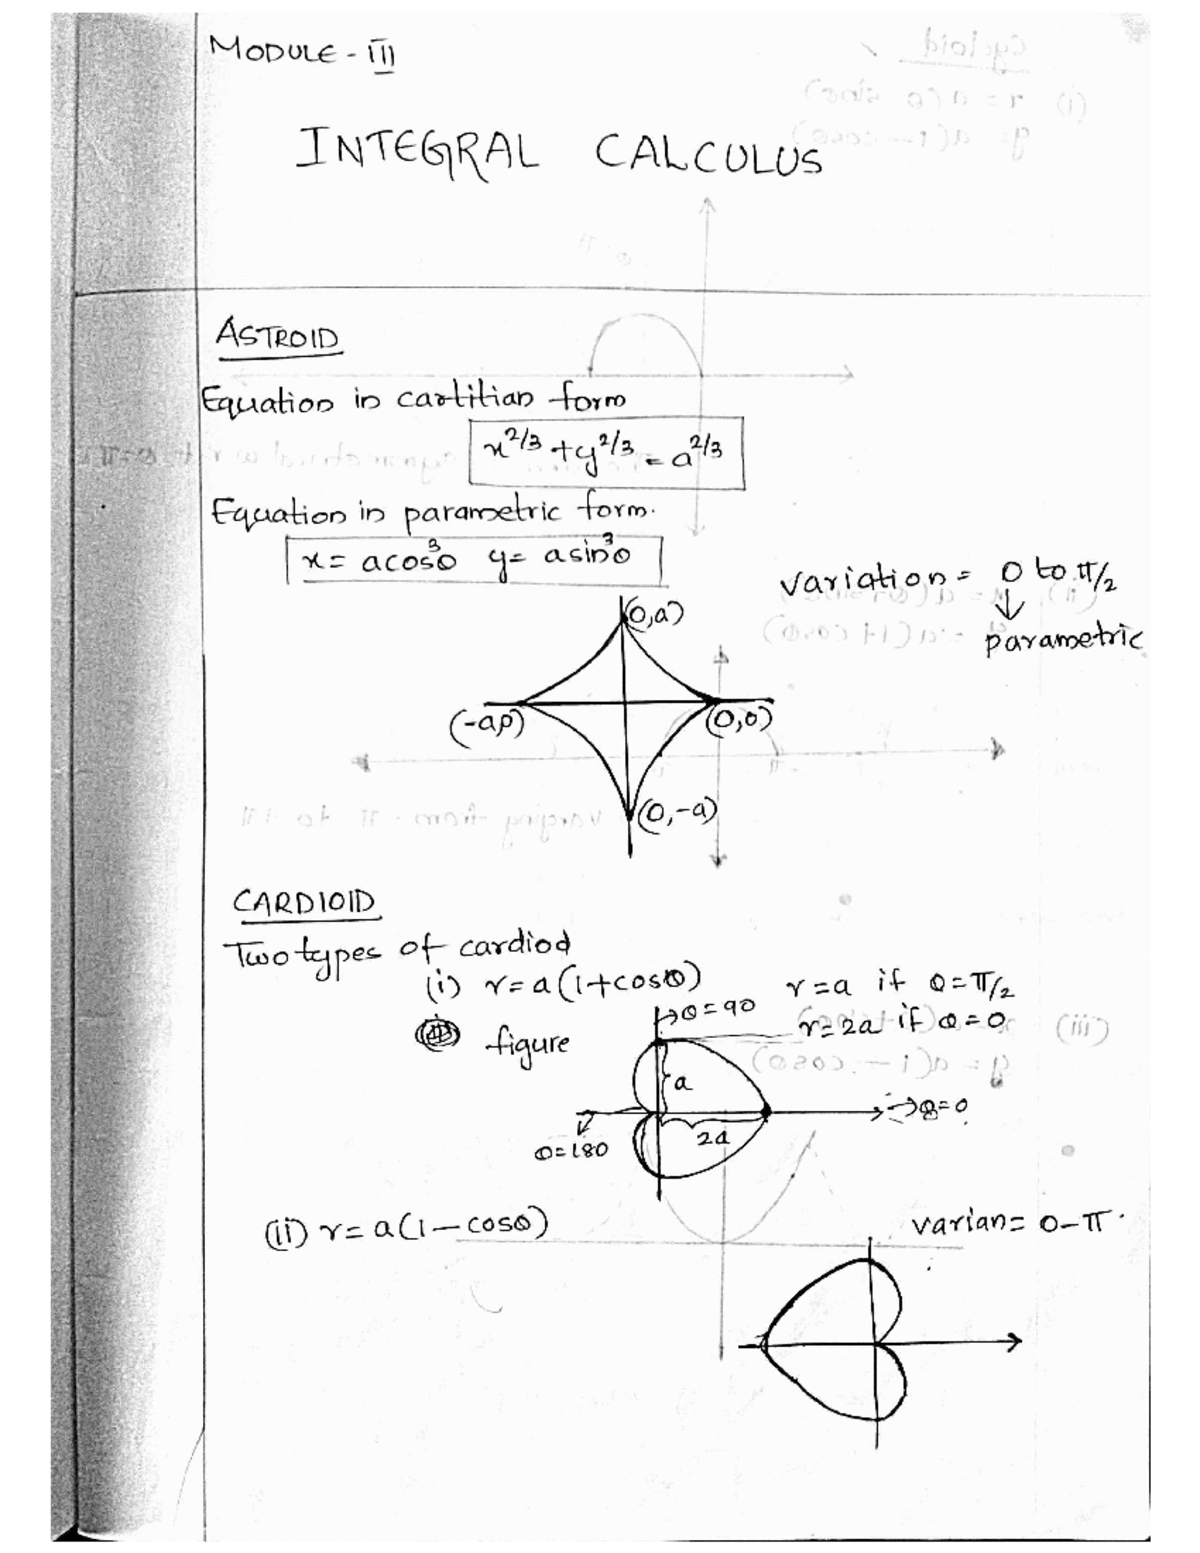 MODULE - III
INTEGRAL CALCULUS
ASTROID
Equation in cartitian form
x^2/3 + y^2/3 = a^2/3
Equation in parametric form.
x = acos³θ y = asin³θ
variation = 0 to π/2
↓
parametric
(0,a)
(-a,0)
(0,0)
(0,-a)
CARDIOID
Two types of cardiod
(i) r = a(1+cosθ)
r = a if θ = π/2
→θ = 90
r = 2a if θ = 0
figure
a
→θ = 0
2a
θ = 180
(ii) r = a(1-cosθ)
varian = 0-π.